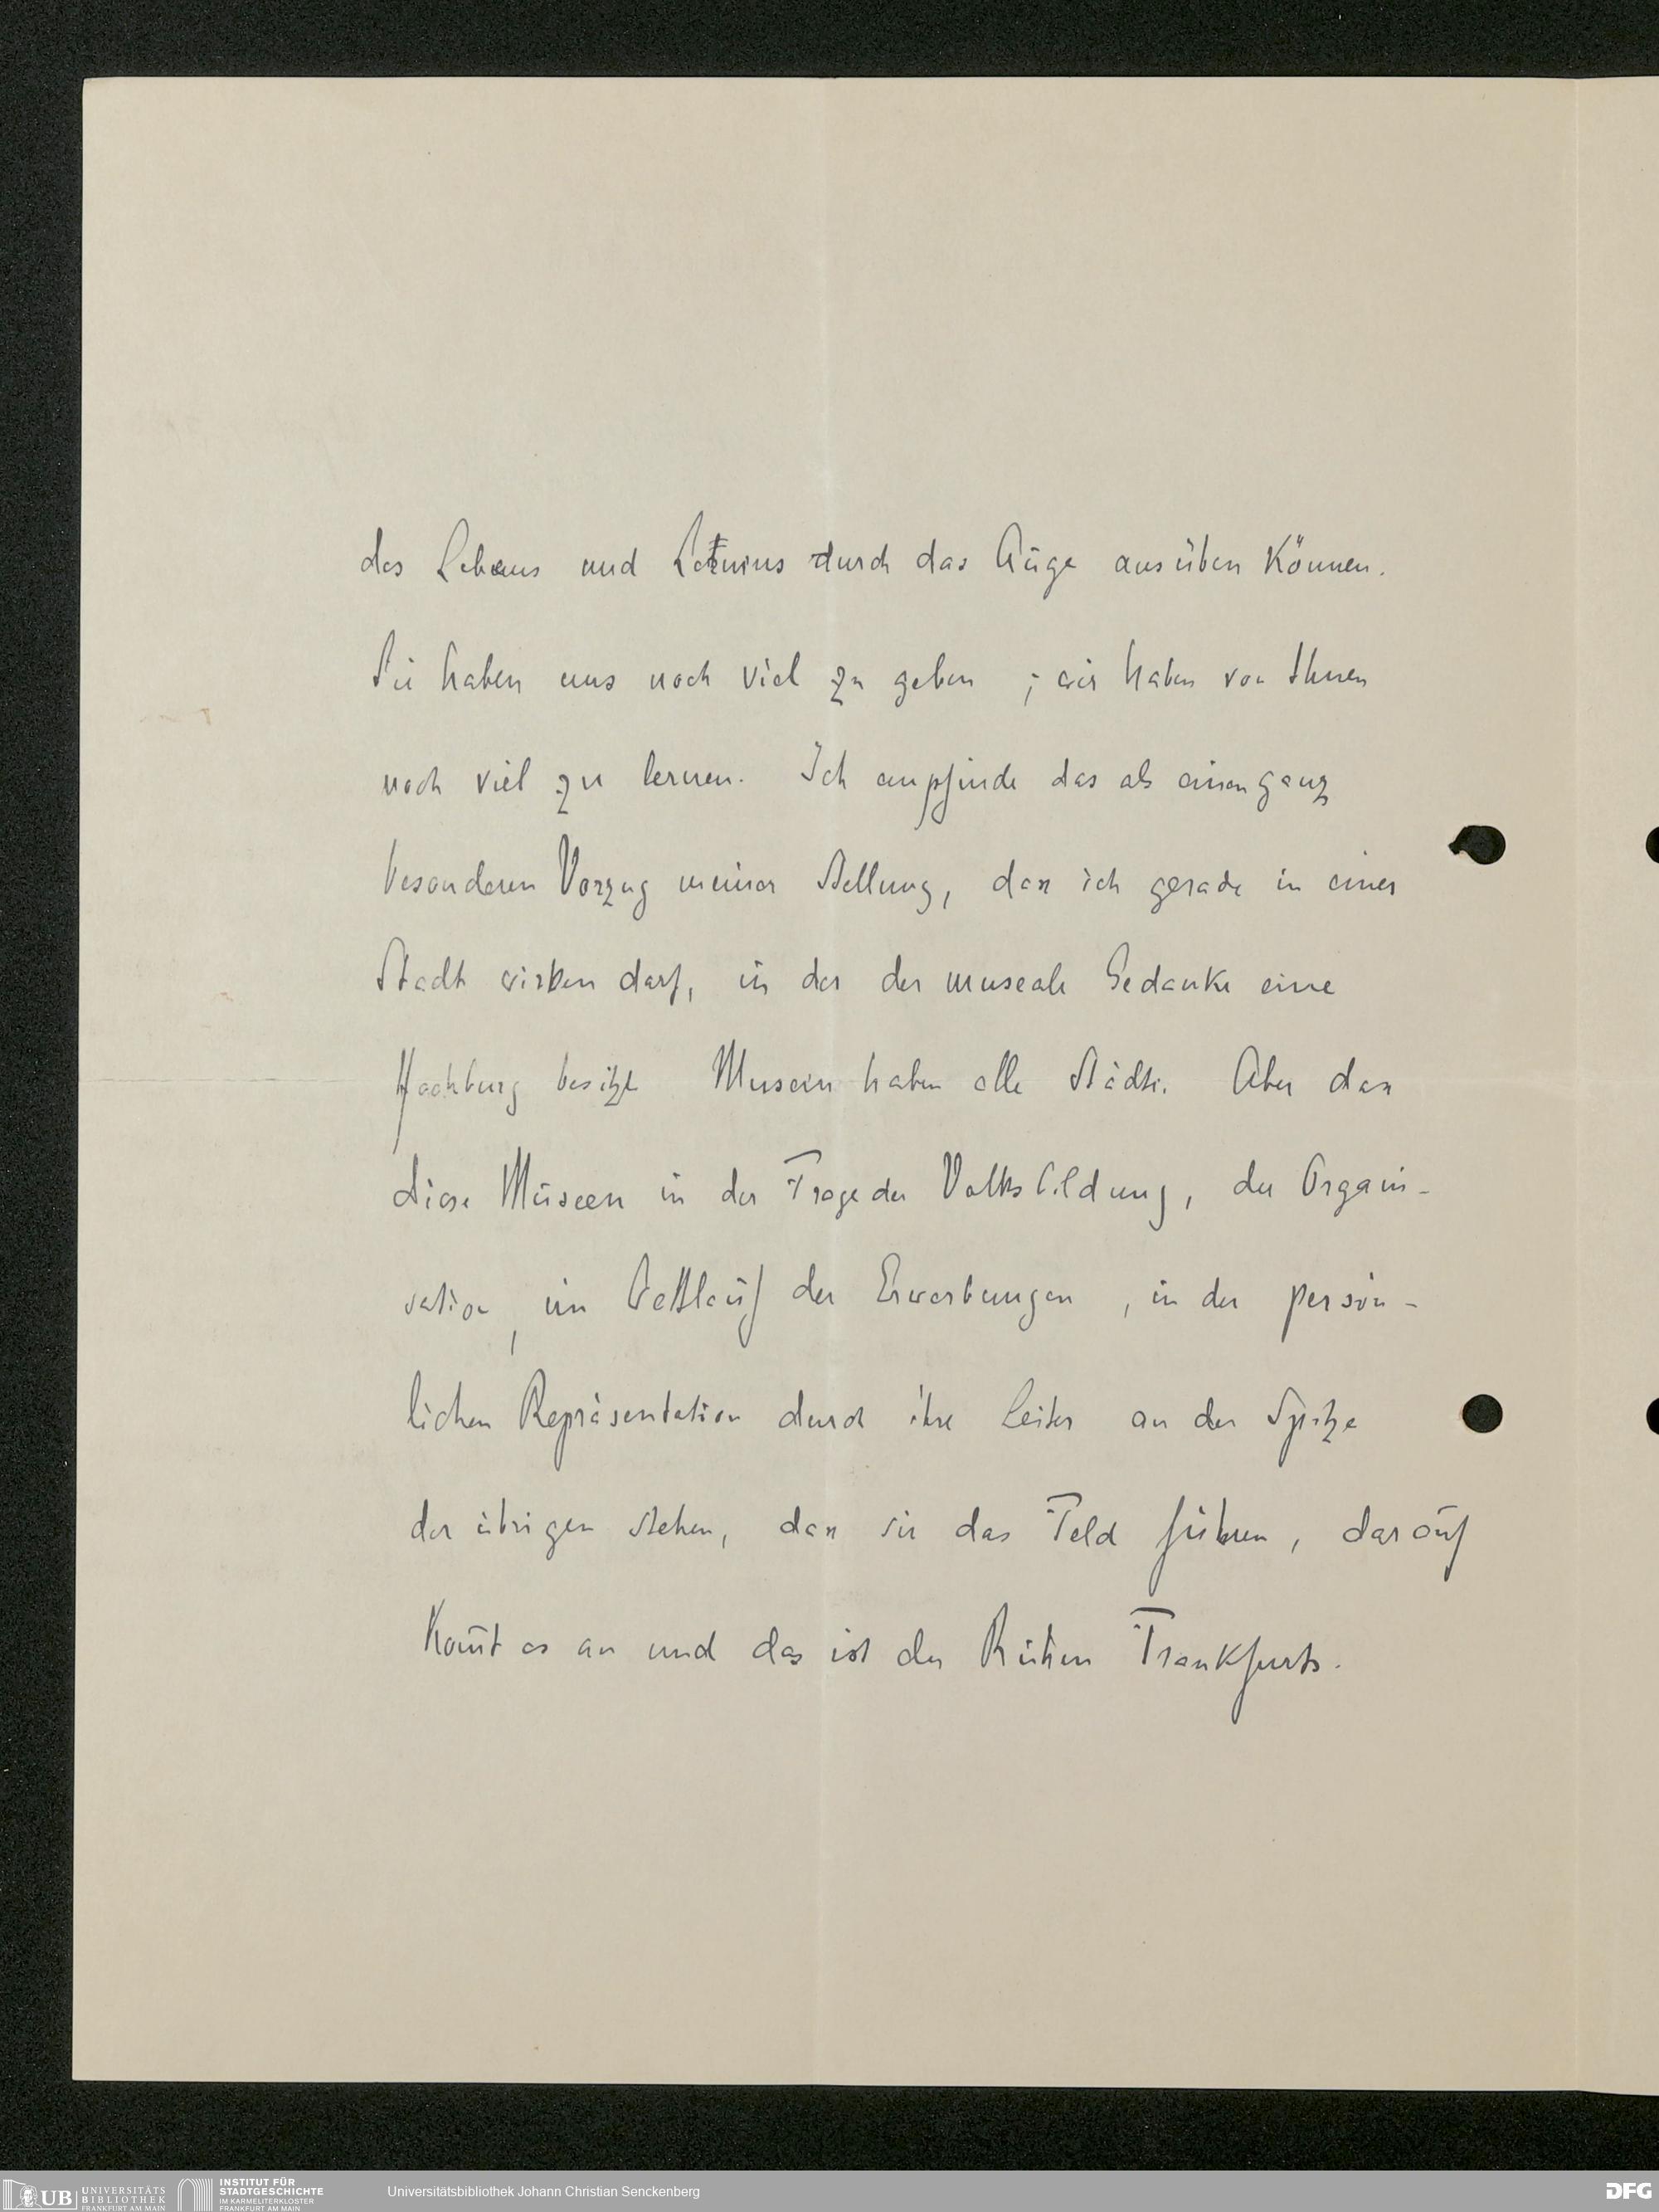 des Lebens und Lernens durch das Auge ausüben können.
Sie haben uns noch viel zu geben; wir haben von Ihnen
noch viel zu lernen. Ich empfinde das als einen ganz
besonderen Vorzug meiner Stellung, dass ich gerade in einer
Stadt wirken darf, in der der museale Gedanke eine
Hochburg besitzt Museen haben alle Städte. Aber dass
diese Museen in der Frage der Volksbildung, der Organi-
sation, im Wettlauf der Erwerbungen, in der persön-
lichen Repräsentation durch ihre Leiter an der Spitze
der übrigen stehen, dass sie das Feld führen, darauf
kom̄t es an und das ist der Ruhm Frankfurts.
UB UNIVERSITÄTS
BIBLIOTHEK
FRANKFURT AM MAIN
INSTITUT FÜR
STADTGESCHICHTE
IM KARMELITERKLOSTER
FRANKFURT AM MAIN
Universitätsbibliothek Johann Christian Senckenberg
DFG